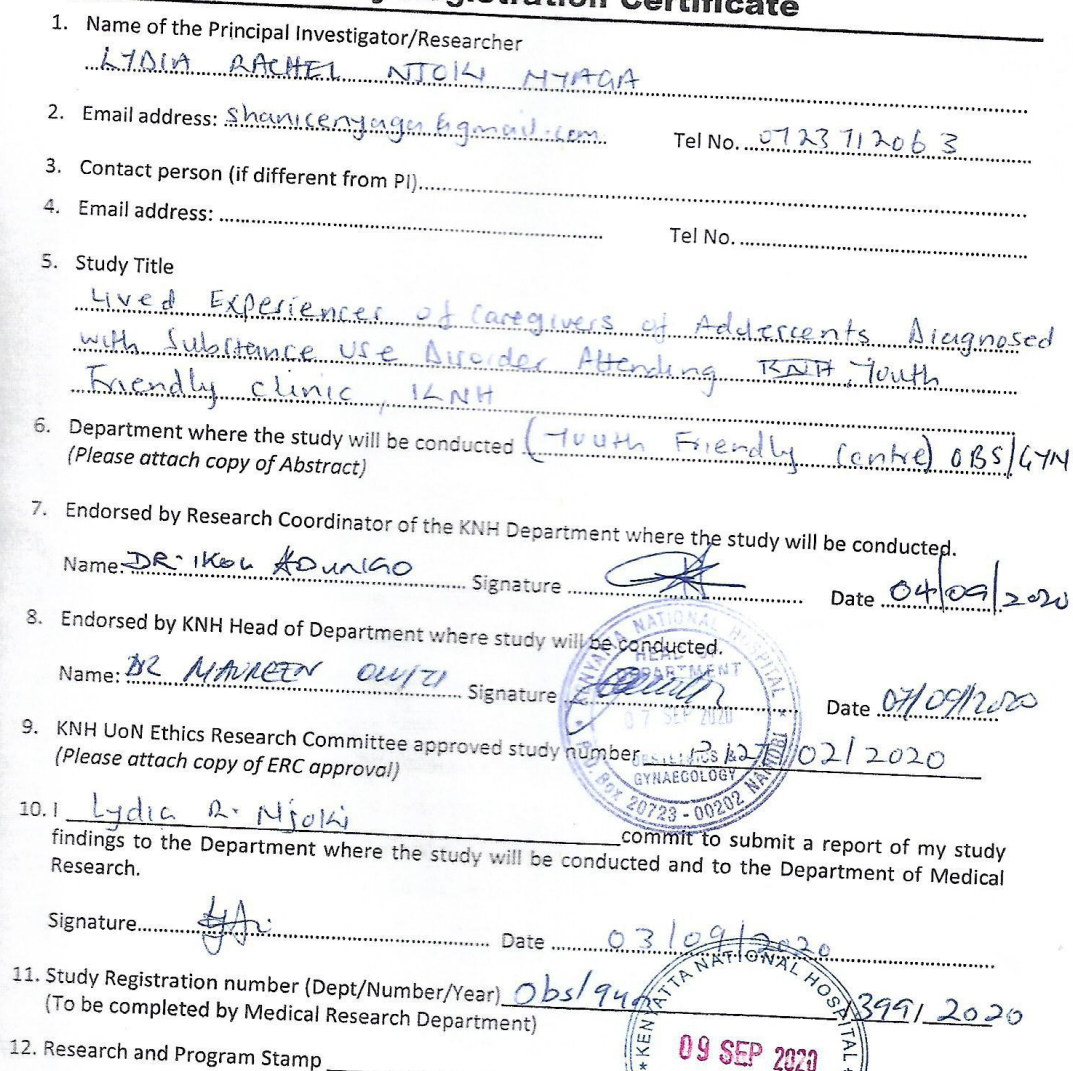 Registration Certificate
1. Name of the Principal Investigator/Researcher
LYDIA RACHEL NJOKI NYAGA
2. Email address: shanicenyaga@gmail.com Tel No. 0723712063
3. Contact person (if different from PI)
4. Email address: Tel No.
5. Study Title
Lived Experiences of Caregivers of Adolescents Diagnosed
with Substance Use Disorder Attending KNH, Youth
Friendly clinic, KNH
6. Department where the study will be conducted (Youth Friendly Centre) OBS/GYN
(Please attach copy of Abstract)
7. Endorsed by Research Coordinator of the KNH Department where the study will be conducted.
Name: DR. IKOL Signature Date 04/09/2020
8. Endorsed by KNH Head of Department where study will be conducted.
Name: DR MAUREEN OWITI Signature Date 07/09/2020
KENYATTA NATIONAL HOSPITAL
HEAD OF
DEPARTMENT
07 SEP 2020
OBSTETRICS &
GYNAECOLOGY
P.O. BOX 20723 - 00202 NAIROBI
9. KNH UoN Ethics Research Committee approved study number /02/2020
(Please attach copy of ERC approval)
10. I Lydia R. Njoki commit to submit a report of my study
findings to the Department where the study will be conducted and to the Department of Medical
Research.
Signature Date 03/09/2020
11. Study Registration number (Dept/Number/Year) Obs/gyn /2020
(To be completed by Medical Research Department)
KENYATTA NATIONAL HOSPITAL
09 SEP 2020
12. Research and Program Stamp